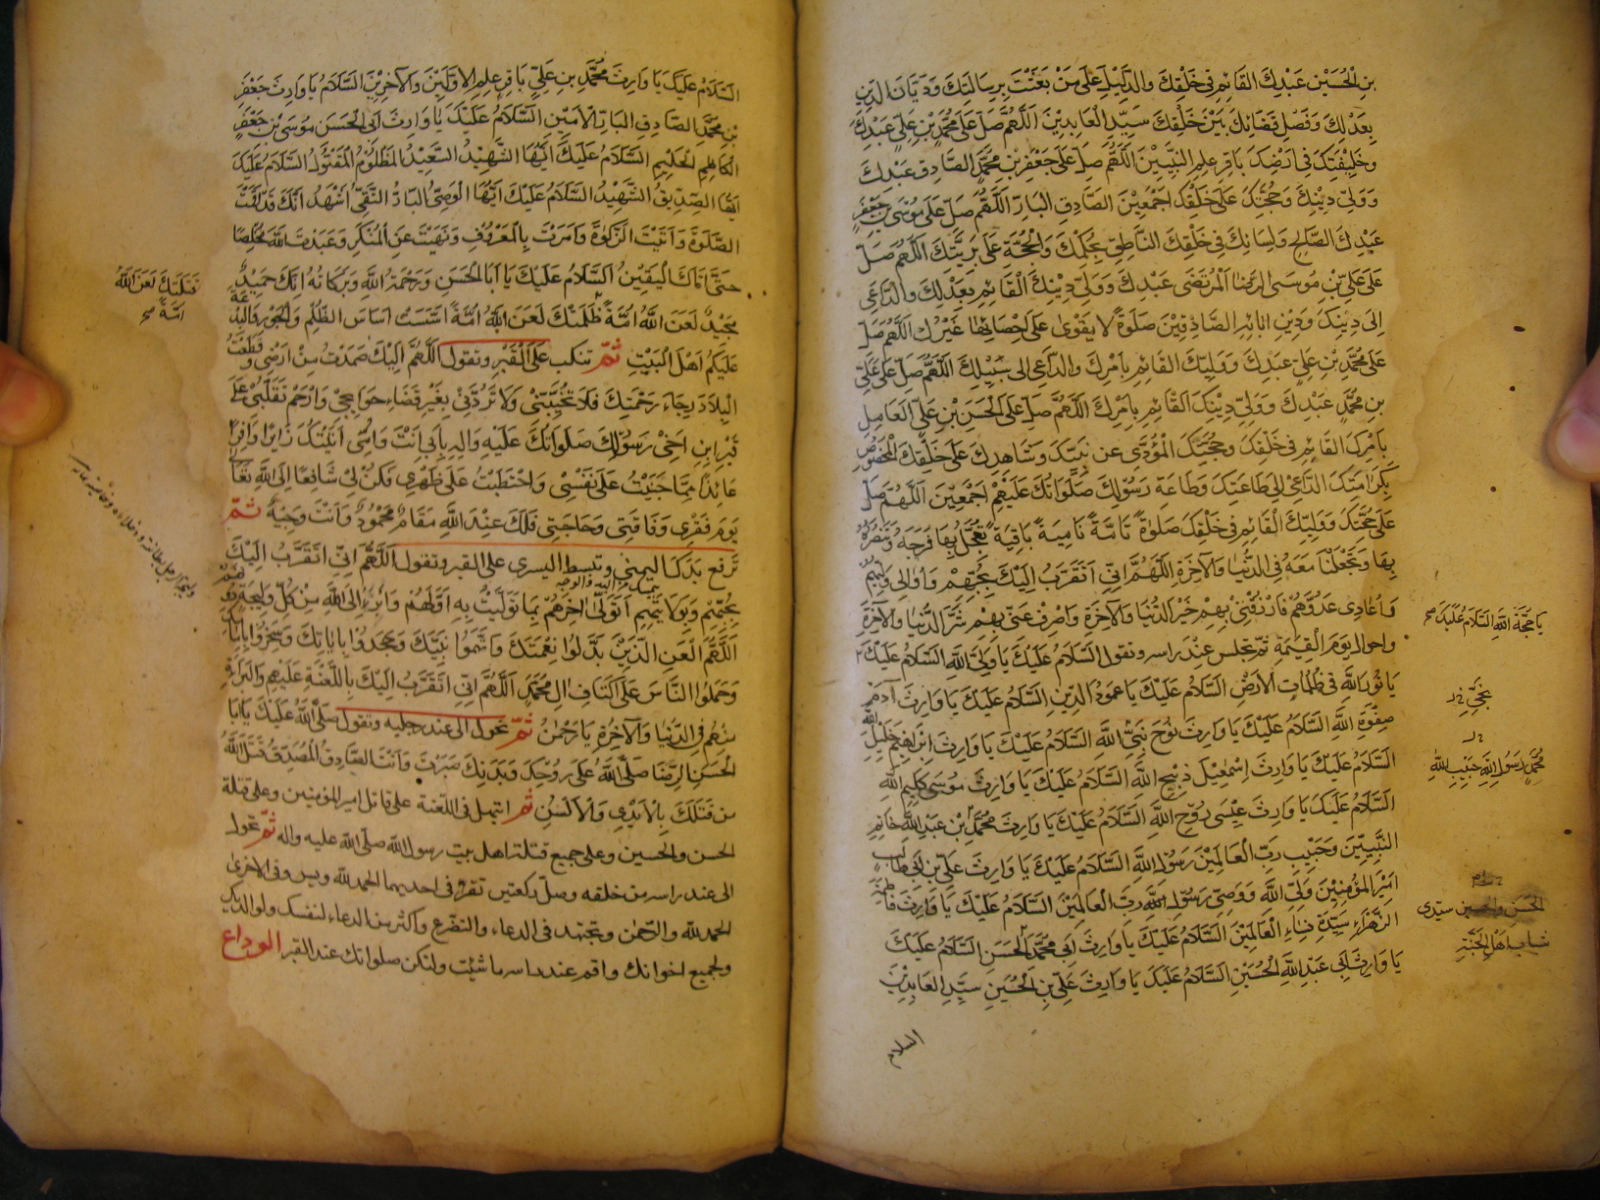 بنِ الْحُسَيْنِ عَبْدِكَ الْقَائِمِ فِي خَلْقِكَ وَالدَّلِيلِ عَلَى مَنْ بَعَثْتَ بِرِسَالَتِكَ وَدَيَّانِ الدِّينِ
بِعَدْلِكَ وَفَصْلِ قَضَائِكَ بَيْنَ خَلْقِكَ سَيِّدِ الْعَابِدِينَ اَللّٰهُمَّ صَلِّ عَلَى مُحَمَّدِ بْنِ عَلِيٍّ عَبْدِكَ
وَخَلِيفَتِكَ فِي اَرْضِكَ بَاقِرِ عِلْمِ النَّبِيِّينَ اَللّٰهُمَّ صَلِّ عَلَى جَعْفَرِ بْنِ مُحَمَّدٍ الصَّادِقِ عَبْدِكَ
وَوَلِيِّ دِينِكَ وَحُجَّتِكَ عَلَى خَلْقِكَ اَجْمَعِينَ الصَّادِقِ الْبَارِّ اَللّٰهُمَّ صَلِّ عَلَى مُوسَى بْنِ جَعْفَرٍ
عَبْدِكَ الصَّالِحِ وَلِسَانِكَ فِي خَلْقِكَ النَّاطِقِ بِحُكْمِكَ وَالْحُجَّةِ عَلَى بَرِيَّتِكَ اَللّٰهُمَّ صَلِّ
عَلَى عَلِيِّ بْنِ مُوسَى الرِّضَا الْمُرْتَضَى عَبْدِكَ وَوَلِيِّ دِينِكَ الْقَائِمِ بِعَدْلِكَ وَالدَّاعِي
اِلَى دِينِكَ وَدِينِ ابَائِهِ الصَّادِقِينَ صَلَوٰةً لَا يَقْوَى عَلَى اِحْصَائِهَا غَيْرُكَ اَللّٰهُمَّ صَلِّ
عَلَى مُحَمَّدِ بْنِ عَلِيٍّ عَبْدِكَ وَوَلِيِّكَ الْقَائِمِ بِاَمْرِكَ وَالدَّاعِي اِلَى سَبِيلِكَ اَللّٰهُمَّ صَلِّ عَلَى عَلِيِّ
بْنِ مُحَمَّدٍ عَبْدِكَ وَوَلِيِّ دِينِكَ الْقَائِمِ بِاَمْرِكَ اَللّٰهُمَّ صَلِّ عَلَى الْحَسَنِ بْنِ عَلِيٍّ الْعَامِلِ
بِاَمْرِكَ الْقَائِمِ فِي خَلْقِكَ وَحُجَّتِكَ الْمُؤَدِّي عَنْ نَبِيِّكَ وَشَاهِدِكَ عَلَى خَلْقِكَ الْمَخْصُوصِ
بِكَرَامَتِكَ الدَّاعِي اِلَى طَاعَتِكَ وَطَاعَةِ رَسُولِكَ صَلَوَاتُكَ عَلَيْهِمْ اَجْمَعِينَ اَللّٰهُمَّ صَلِّ
عَلَى حُجَّتِكَ وَوَلِيِّكَ الْقَائِمِ فِي خَلْقِكَ صَلَوٰةً تَامَّةً نَامِيَةً بَاقِيَةً تُعَجِّلُ بِهَا فَرَجَهُ وَتَنْصُرُهُ
بِهَا وَتَجْعَلُنَا مَعَهُ فِي الدُّنْيَا وَالْآخِرَةِ اَللّٰهُمَّ اِنِّي اَتَقَرَّبُ اِلَيْكَ بِحُبِّهِمْ وَاُوَالِي وَلِيَّهُمْ
وَاُعَادِي عَدُوَّهُمْ فَارْزُقْنِي بِهِمْ خَيْرَ الدُّنْيَا وَالْآخِرَةِ وَاصْرِفْ عَنِّي بِهِمْ شَرَّ الدُّنْيَا وَالْآخِرَةِ
وَاَهْوَالَ يَوْمِ الْقِيٰمَةِ ثُمَّ تجلس عِنْدَ رَاسه وتقول السَّلَامُ عَلَيْكَ يَا وَلِيَّ اللّٰهِ السَّلَامُ عَلَيْكَ
يَا نُورَ اللّٰهِ فِي ظُلُمَاتِ الْاَرْضِ السَّلَامُ عَلَيْكَ يَا عَمُودَ الدِّينِ السَّلَامُ عَلَيْكَ يَا وَارِثَ آدَمَ
صِفْوَةِ اللّٰهِ السَّلَامُ عَلَيْكَ يَا وَارِثَ نُوحٍ نَبِيِّ اللّٰهِ السَّلَامُ عَلَيْكَ يَا وَارِثَ اِبْرَاهِيمَ خَلِيلِ اللّٰه
السَّلَامُ عَلَيْكَ يَا وَارِثَ اِسْمٰعِيلَ ذَبِيحِ اللّٰهِ السَّلَامُ عَلَيْكَ يَا وَارِثَ مُوسَى كَلِيمِ اللّٰهِ
السَّلَامُ عَلَيْكَ يَا وَارِثَ عِيسَى رُوحِ اللّٰهِ السَّلَامُ عَلَيْكَ يَا وَارِثَ مُحَمَّدِ بْنِ عَبْدِ اللّٰهِ خَاتَمِ
النَّبِيِّينَ وَحَبِيبِ رَبِّ الْعَالَمِينَ رَسُولِ اللّٰهِ السَّلَامُ عَلَيْكَ يَا وَارِثَ عَلِيِّ بْنِ اَبِي طَالِبٍ
اَمِيرِ الْمُؤْمِنِينَ وَلِيِّ اللّٰهِ وَوَصِيِّ رَسُولِ اللّٰهِ رَبِّ الْعَالَمِينَ السَّلَامُ عَلَيْكَ يَا وَارِثَ فَاطِمَةَ
الزَّهْرَاءِ سَيِّدَةِ نِسَاءِ الْعَالَمِينَ السَّلَامُ عَلَيْكَ يَا وَارِثَ اَبِي مُحَمَّدٍ الْحَسَنِ السَّلَامُ عَلَيْكَ
يَا وَارِثَ اَبِي عَبْدِ اللّٰهِ الْحُسَيْنِ السَّلَامُ عَلَيْكَ يَا وَارِثَ عَلِيِّ بْنِ الْحُسَيْنِ سَيِّدِ الْعَابِدِينَ
السلام
يَا حُجَّةَ اللّٰهِ السَّلَامُ عَلَيْكَ صح
مُحَمَّدٍ رَسُولِ اللّٰهِ حَبِيبِ اللّٰهِ
الْحَسَنِ وَالْحُسَيْنِ سَيِّدَي
شَبَابِ اَهْلِ الْجَنَّةِ
السَّلَامُ عَلَيْكَ يَا وَارِثَ مُحَمَّدِ بْنِ عَلِيٍّ بَاقِرِ عِلْمِ الْاَوَّلِينَ وَالْآخِرِينَ السَّلَامُ يَا وَارِثَ جَعْفَرِ
بْنِ مُحَمَّدٍ الصَّادِقِ الْبَارِّ الْاَمِينِ السَّلَامُ عَلَيْكَ يَا وَارِثَ اَبِي الْحَسَنِ مُوسَى بْنِ جَعْفَرٍ
الْكَاظِمِ الْحَلِيمِ السَّلَامُ عَلَيْكَ اَيُّهَا الشَّهِيدُ السَّعِيدُ الْمَظْلُومُ الْمَقْتُولُ السَّلَامُ عَلَيْكَ
اَيُّهَا الصِّدِّيقُ الشَّهِيدُ السَّلَامُ عَلَيْكَ اَيُّهَا الْوَصِيُّ الْبَارُّ التَّقِيُّ اَشْهَدُ اَنَّكَ قَدْ اَقَمْتَ
الصَّلَوٰةَ وَآتَيْتَ الزَّكَوٰةَ وَاَمَرْتَ بِالْمَعْرُوفِ وَنَهَيْتَ عَنِ الْمُنْكَرِ وَعَبَدْتَ اللّٰهَ مُخْلِصًا
حَتَّى اَتَاكَ الْيَقِينُ اَلسَّلَامُ عَلَيْكَ يَا اَبَا الْحَسَنِ وَرَحْمَةُ اللّٰهِ وَبَرَكَاتُهُ اِنَّكَ حَمِيدٌ
مَجِيدٌ لَعَنَ اللّٰهُ اُمَّةً ظَلَمَتْكَ لَعَنَ اللّٰهُ اُمَّةً اَسَّسَتْ اَسَاسَ الظُّلْمِ وَالْجَوْرِ وَالْبِدْعَةِ
عَلَيْكُمْ اَهْلَ الْبَيْتِ ثُمَّ تنكب عَلَى الْقَبْرِ وتَقول اَللّٰهُمَّ اِلَيْكَ صَمَدْتُ مِنْ اَرْضِي وَقَطَعْتُ
الْبِلَادَ رَجَاءَ رَحْمَتِكَ فَلَا تُخَيِّبْنِي وَلَا تَرُدَّنِي بِغَيْرِ قَضَاءِ حَوَائِجِي وَارْحَمْ تَقَلُّبِي عَلَى
قَبْرِ ابْنِ اَخِي رَسُولِكَ صَلَوَاتُكَ عَلَيْهِ وَالِهِ بِاَبِي اَنْتَ وَاُمِّي اَتَيْتُكَ زَائِرًا وَافِدًا
عَائِذًا مِمَّا جَنَيْتُ عَلَى نَفْسِي وَاحْتَطَبْتُ عَلَى ظَهْرِي فَكُنْ لِي شَافِعًا اِلَى اللّٰهِ تَعَالَى
يَوْمَ فَقْرِي وَفَاقَتِي وَحَاجَتِي فَلَكَ عِنْدَ اللّٰهِ مَقَامٌ مَحْمُودٌ وَاَنْتَ وَجِيهٌ ثُمَّ
تَرفع يَدَكَ اليمنى وتبسط اليسرى على القبر وتقول اَللّٰهُمَّ اِنِّي اَتَقَرَّبُ اِلَيْكَ
بِحُبِّهِمْ وَبِوَلَايَتِهِمْ اَتَوَلَّى اٰخِرَهُمْ بِمَا تَوَلَّيْتُ بِهِ اَوَّلَهُمْ وَاَبْرَءُ اِلَى اللّٰهِ مِنْ كُلِّ وَلِيجَةٍ دُونَهُمْ
اَللّٰهُمَّ الْعَنِ الَّذِينَ بَدَّلُوا نِعْمَتَكَ وَاتَّهَمُوا نَبِيَّكَ وَجَحَدُوا بِايَاتِكَ وَسَخِرُوا بِاِمَامِكَ
وَحَمَلُوا النَّاسَ عَلَى اَكْتَافِ الِ مُحَمَّدٍ اَللّٰهُمَّ اِنِّي اَتَقَرَّبُ اِلَيْكَ بِاللَّعْنَةِ عَلَيْهِمْ وَالْبَرَاءَةِ
مِنْهُمْ فِي الدُّنْيَا وَالْآخِرَةِ يَا رَحْمٰنُ ثُمَّ تحول الى عند رجليه وتقول صَلَّى اللّٰهُ عَلَيْكَ يَا اَبَا
الْحَسَنِ الرِّضَا صَلَّى اللّٰهُ عَلَى رُوحِكَ وَبَدَنِكَ صَبَرْتَ وَاَنْتَ الصَّادِقُ الْمُصَدِّقُ قَتَلَ اللّٰهُ
مَنْ قَتَلَكَ بِالْاَيْدِي وَالْاَلْسُنِ ثم ابتهل فى اللعنة على قاتل امير المؤمنين وعلى قتلة
الحسن والحسين وعلى جميع قتلة اهل بيت رسول الله صلى الله عليه واله ثُمَّ تحول
الى عند راسه من خلفه وصل ركعتين تقرء فى احديهما الحمد لله ويس وفى الاخرى
الحمد لله والرّحمن وتجتهد فى الدعاء والتضرع واكثر من الدعاء لنفسك ولوالديك
ولجميع اخوانك واقم عند راسه ما شئت ولتكن صلواتك عند القبر الوداع
قَتَلَتْكَ لَعَنَ اللّٰهُ
اُمَّةً صح